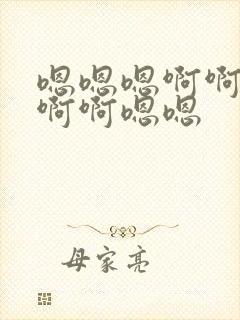 嗯嗯嗯啊啊
啊啊嗯嗯
母家亮